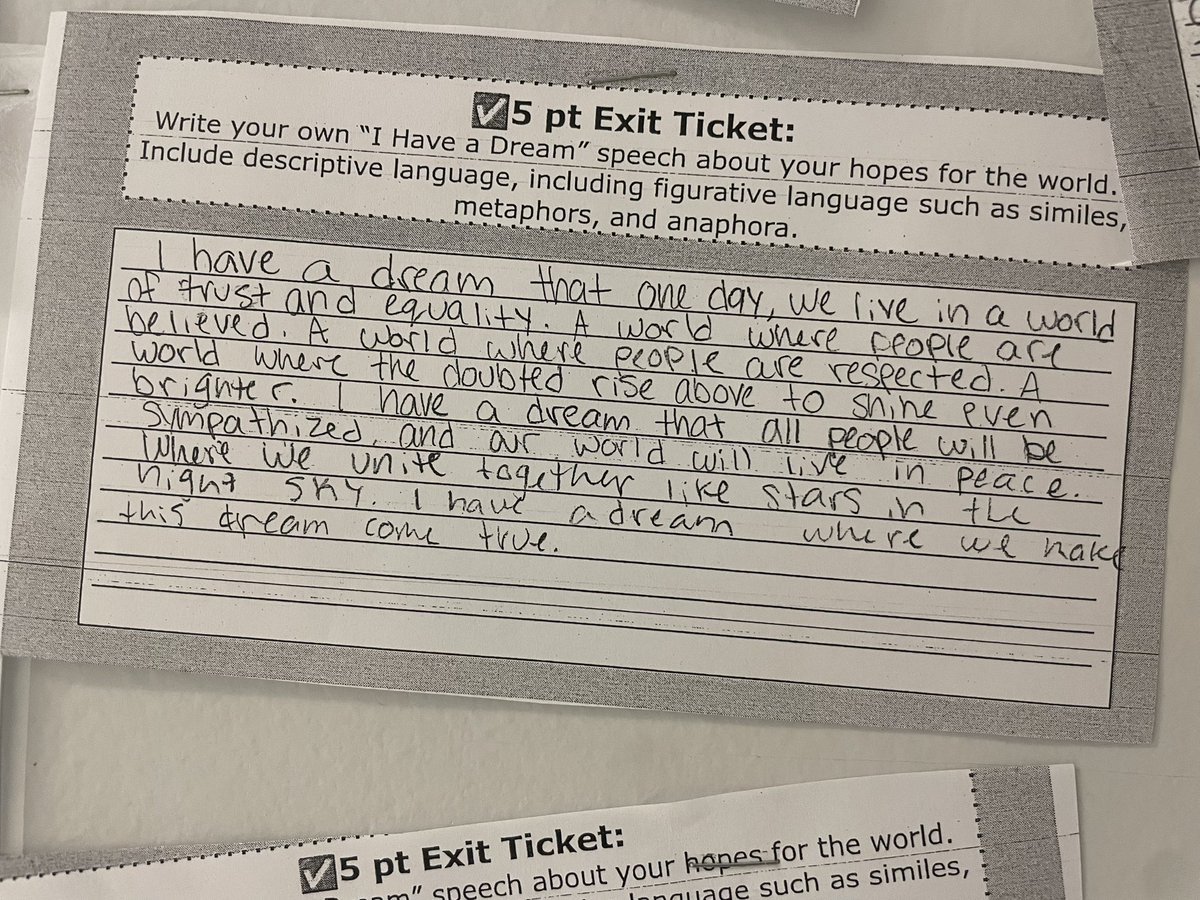 ✅5 pt Exit Ticket:
Write your own “I Have a Dream” speech about your hopes for the world.
Include descriptive language, including figurative language such as similes,
metaphors, and anaphora.
I have a dream that one day, we live in a world
of trust and equality. A world where people are
believed. A world where people are respected. A
world where the doubted rise above to shine even
brighter. I have a dream that all people will be
sympathized, and our world will live in peace.
Where we unite together like stars in the
night sky. I have a dream where we make
this dream come true.
✅5 pt Exit Ticket:
speech about your hopes for the world.
language such as similes,